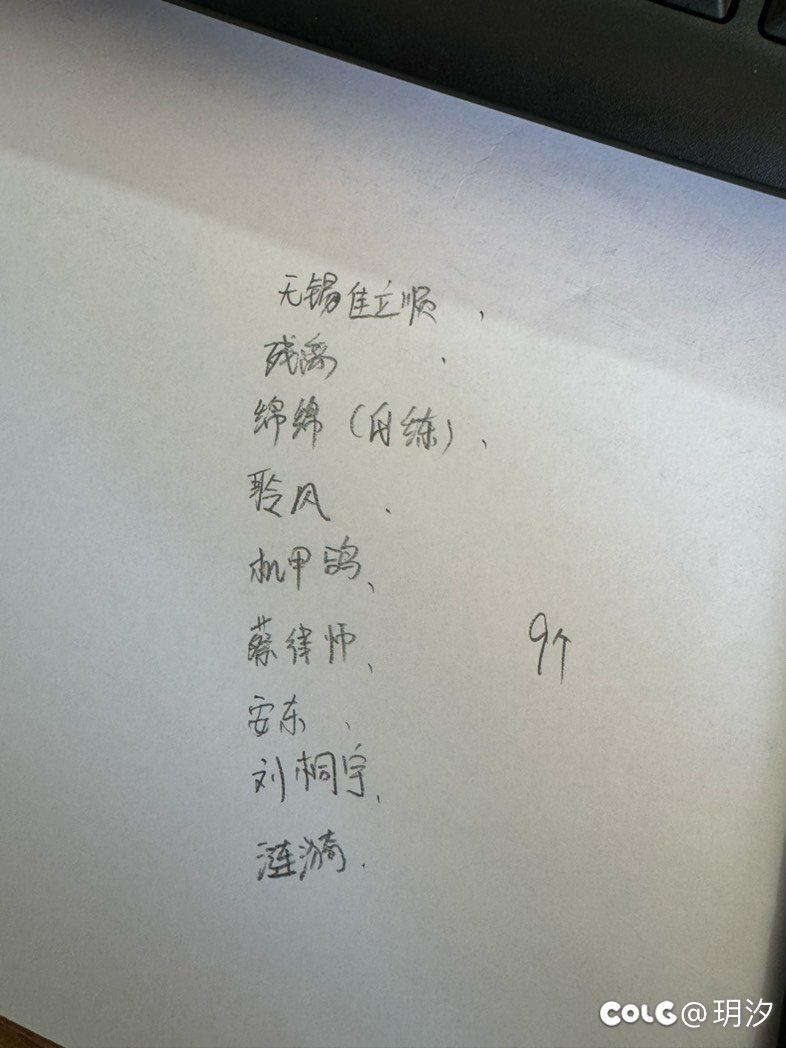 无锡佳立顺、
残离、
绵绵（自练）、
聆风、
机甲鸽、
蔡律师、
9个
安东、
刘桐宇、
涟漪.
COLG@玥汐